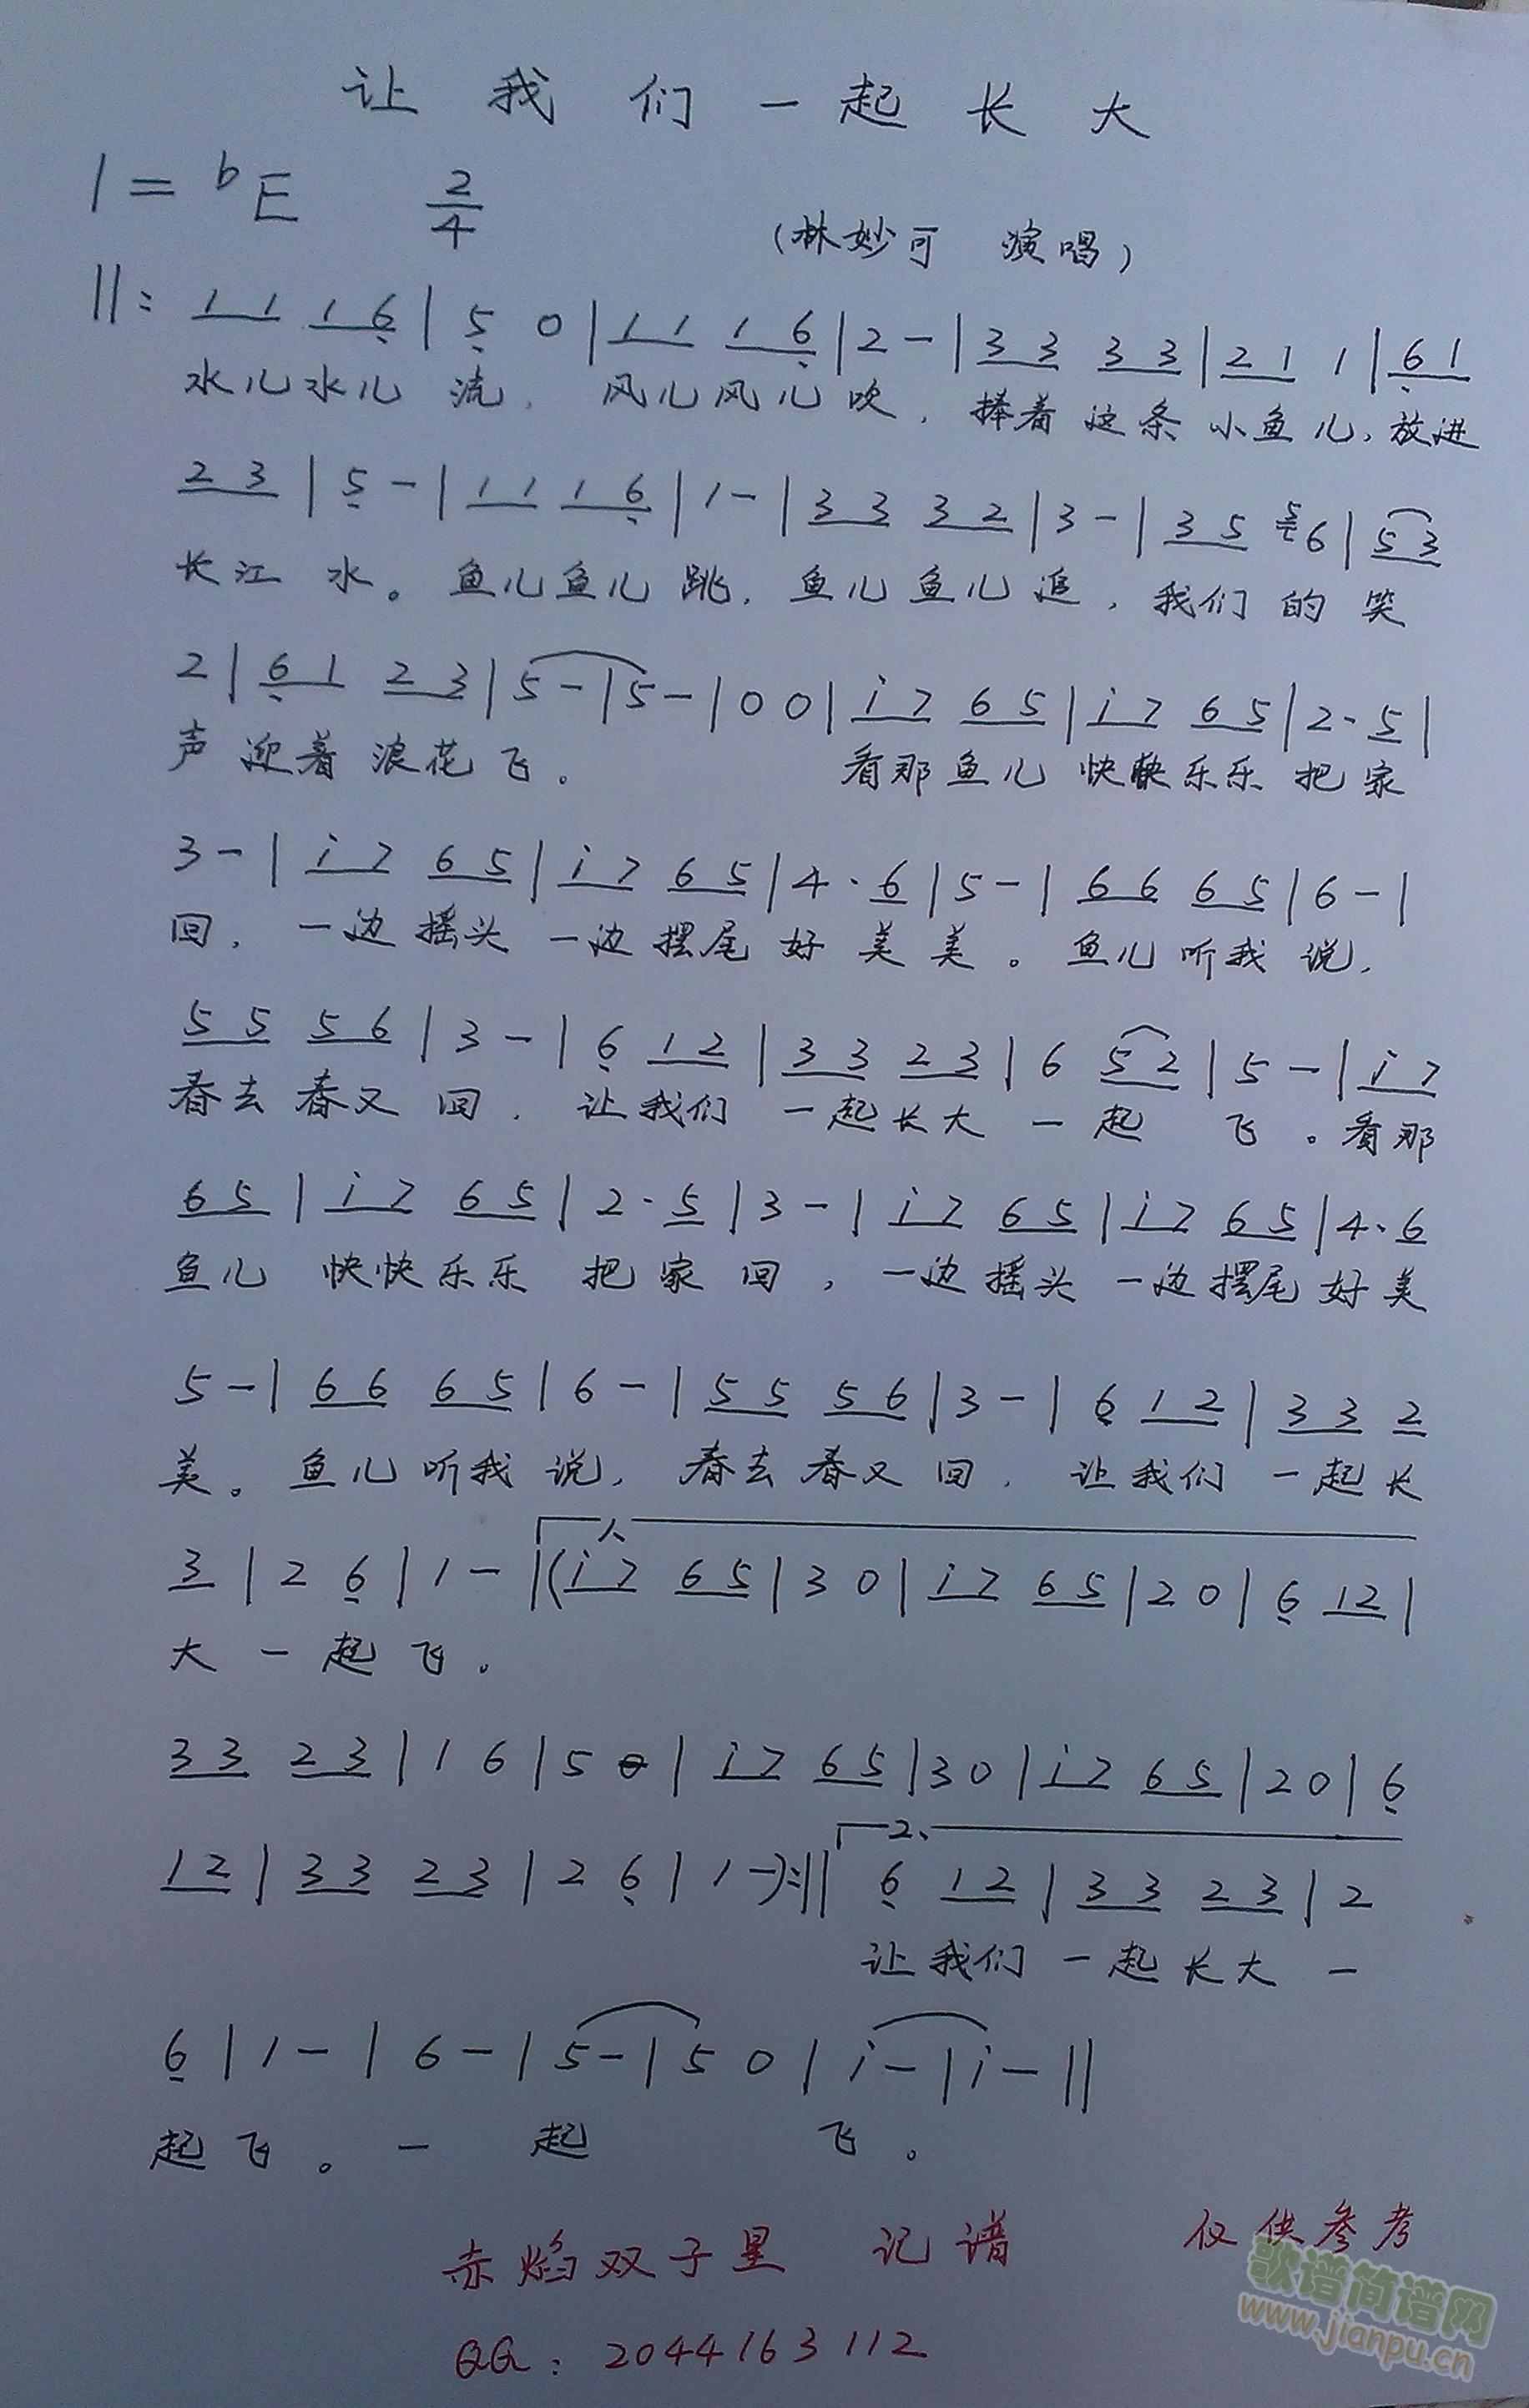 让我们一起长大
1=bE 2/4
(林妙可 演唱)
||: 1 1 1 6 | 5 0 | 1 1 1 6 | 2 - | 3 3 3 3 | 2 1 1 | 6 1
水儿水儿 流, 风儿风儿吹, 捧着这条小鱼儿, 放进
2 3 | 5 - | 1 1 1 6 | 1 - | 3 3 3 2 | 3 - | 3 5 5 6 | 5 3
长江 水。鱼儿鱼儿 跳, 鱼儿鱼儿追, 我们的笑
2 | 6 1 2 3 | 5 - | 5 - | 0 0 | i 7 6 5 | i 7 6 5 | 2 · 5 |
声 迎着 浪花飞。 看那鱼儿 快快乐乐 把家
3 - | i 7 6 5 | i 7 6 5 | 4 · 6 | 5 - | 6 6 6 5 | 6 - |
回, 一边摇头 一边摆尾 好美美。鱼儿听我说,
5 5 5 6 | 3 - | 6 1 2 | 3 3 2 3 | 6 5 2 | 5 - | i 7
春去春又回, 让我们 一起长大 一起 飞。看那
6 5 | i 7 6 5 | 2 · 5 | 3 - | i 7 6 5 | i 7 6 5 | 4 · 6
鱼儿 快快乐乐 把家回, 一边摇头 一边摆尾 好美
5 - | 6 6 6 5 | 6 - | 5 5 5 6 | 3 - | 6 1 2 | 3 3 2
美。鱼儿听我说, 春去春又回, 让我们 一起长
1、
3 | 2 6 | 1 - | (i 7 6 5 | 3 0 | i 7 6 5 | 2 0 | 6 1 2 |
大 一起飞。
3 3 2 3 | 1 6 | 5 0 | i 7 6 5 | 3 0 | i 7 6 5 | 2 0 | 6
2、
1 2 | 3 3 2 3 | 2 6 | 1 -) :|| 6 1 2 | 3 3 2 3 | 2
让我们 一起长大 一
6 | 1 - | 6 - | 5 - | 5 0 | i - | i - ||
起飞。一 起 飞。
赤焰双子星 记谱 仅供参考
QQ: 2044163112
歌谱简谱网
www.jianpu.cn